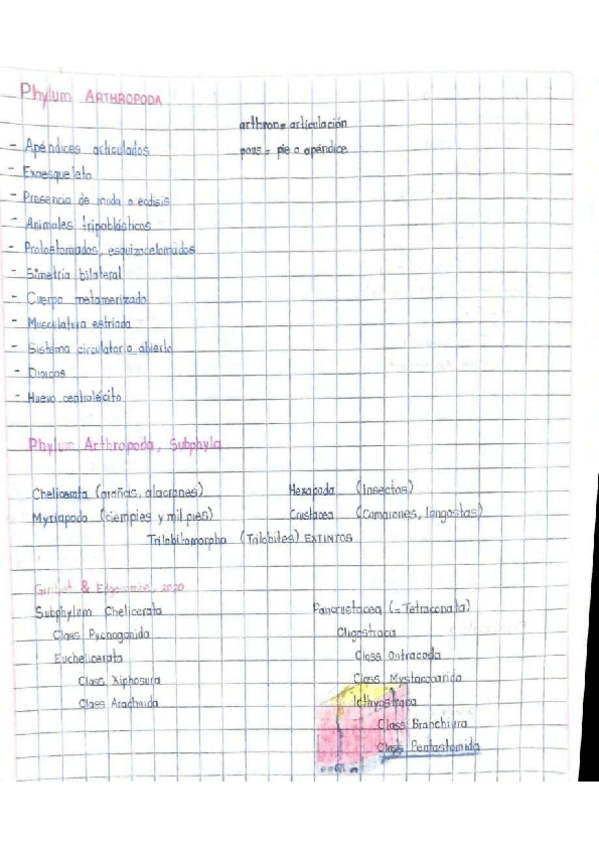 Phylum ARTHROPODA
arthron= articulación
- Apéndices articulados
pous = pie o apéndice
- Exoesqueleto
- Presencia de muda o ecdisis
- Animales tripoblásticos
- Protostomados, esquizocelomados
- Simetría bilateral
- Cuerpo metamerizado
- Musculatura estriada
- Sistema circulatorio abierto
- Dioicos
- Huevo centrolécito
Phylum Arthropoda, Subphyla
Chelicerata (arañas, alacranes)
Hexapoda (Insectos)
Myriapoda (ciempies y milpies)
Crustacea (Camarones, langostas)
Trilobitomorpha (Trilobites) EXTINTOS
& 2020
Subphylum Chelicerata
Class Pycnogonida
Euchelicerata
Class Xiphosura
Class Arachnida
Pancrustacea (=Tetraconata)
Oligostraca
Class Ostracoda
Class Mystacocarida
Icthyostraca
Class Branchiura
Class Pentastomida